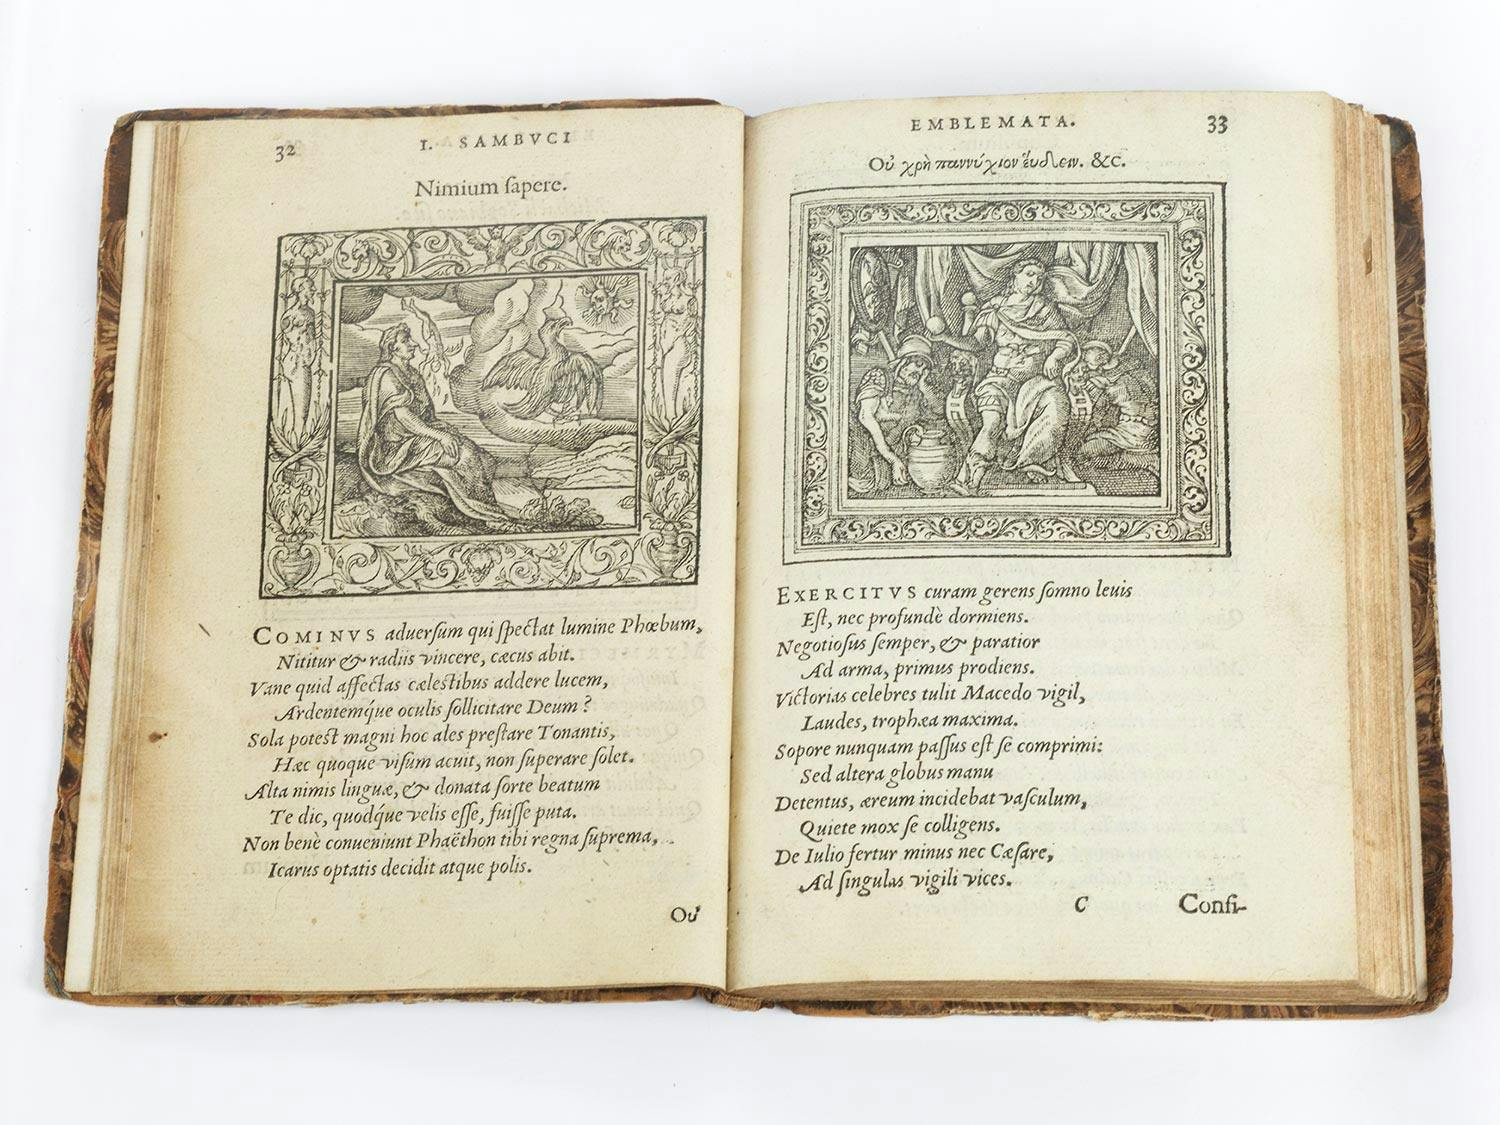 32
I. SAMBVCI
Nimium ſapere.
COMINVS aduerſum qui ſpectat lumine Phœbum,
Nititur & radiis vincere, cæcus abit.
Vane quid affectas cæleſtibus addere lucem,
Ardentemq́ue oculis ſollicitare Deum?
Sola poteſt magni hoc ales preſtare Tonantis,
Hæc quoque viſum acuit, non ſuperare ſolet.
Alta nimis linguæ, & donata ſorte beatum
Te dic, quodq́ue velis eſſe, fuiſſe puta.
Non benè conueniunt Phaëthon tibi regna ſuprema,
Icarus optatis decidit atque polis.
Οὐ
EMBLEMATA. 33
Οὐ χρὴ παννύχιον ἕυδειν. &c.
EXERCITVS curam gerens ſomno leuis
Eſt, nec profundè dormiens.
Negotioſus ſemper, & paratior
Ad arma, primus prodiens.
Victorias celebres tulit Macedo vigil,
Laudes, trophæa maxima.
Sopore nunquam paſſus eſt ſe comprimi:
Sed altera globus manu
Detentus, æreum incidebat vaſculum,
Quiete mox ſe colligens.
De Iulio fertur minus nec Cæſare,
Ad ſingulas vigili vices.
C Confi-